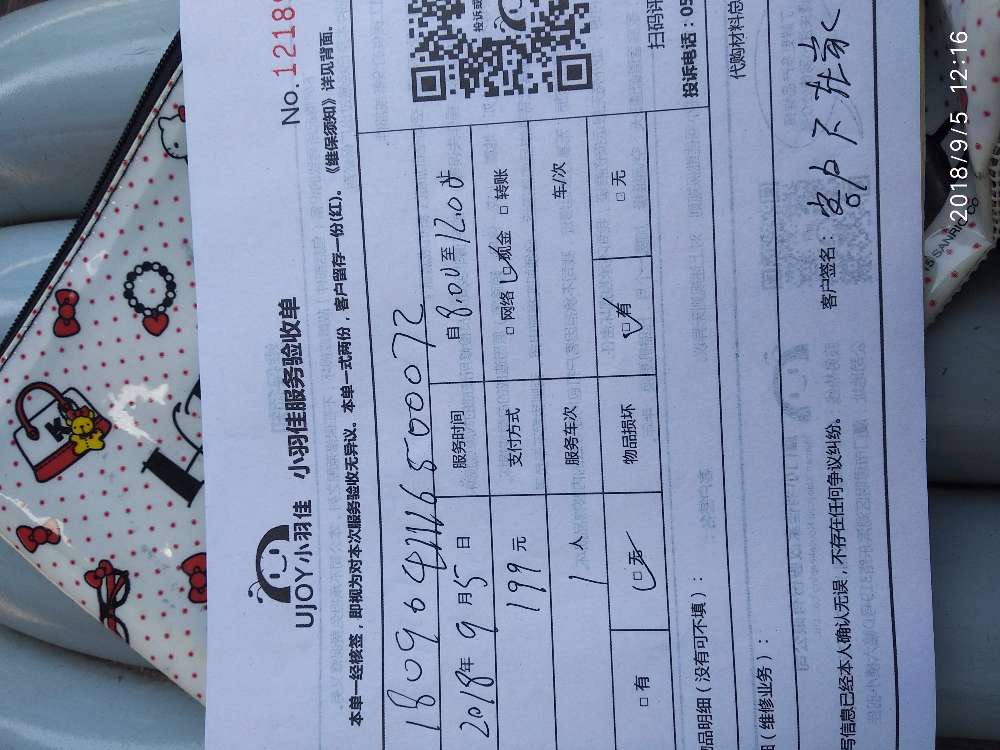 No.1218
UJOY小羽佳 小羽佳服务验收单
本单一经核签，即视为对本次服务验收无异议。本单一式两份，客户留存一份(红)。《维保须知》详见背面。
2018年 9 月 5 日 服务时间 自 8.00 至 12.00 步
199 元 支付方式 □ 网络 现金 □ 转账
1 人 服务车次 车/次
□ 有 □ 无 物品损坏 □ 有 □ 无
扫码评
投诉电话：05
品明细（没有可不填）：
代购材料总
（维修业务）：
写信息已经本人确认无误，不存在任何争议纠纷。 客户签名： 客户不在家
SANRIO
2018/9/5 12:16